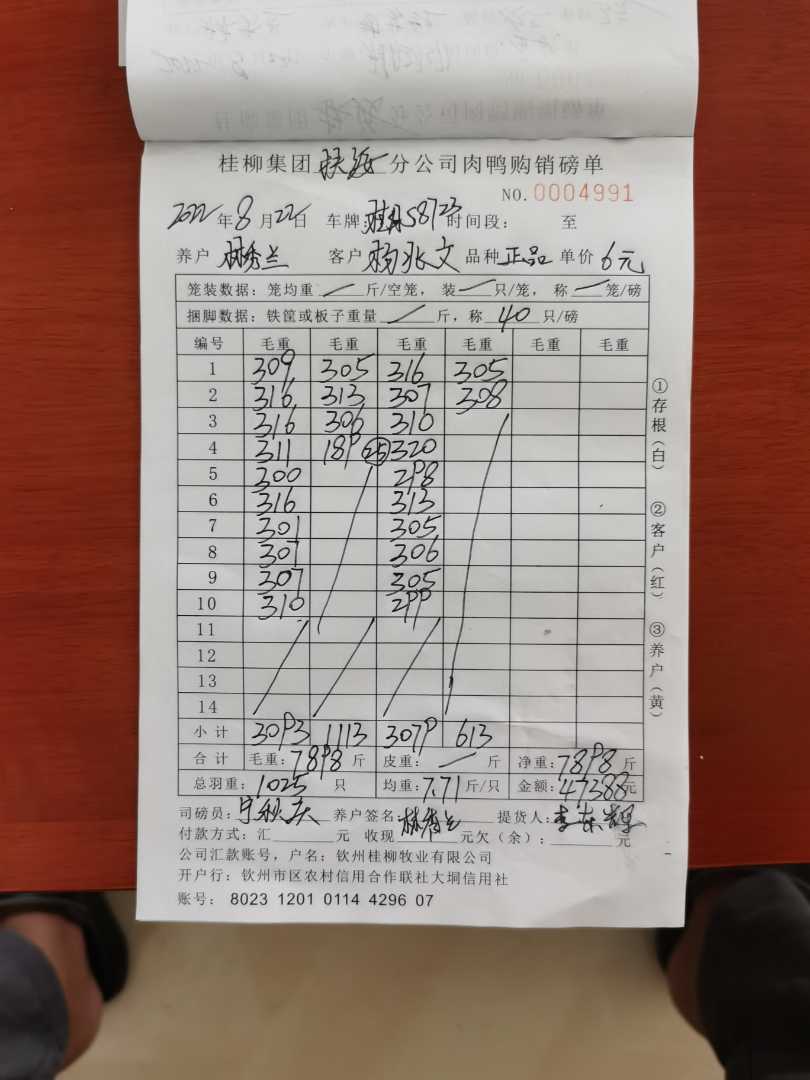 桂柳集团 扶绥 分公司肉鸭购销磅单
NO.0004991
2022年8月22日 车牌:桂 58723 时间段: 至
养户 林秀兰 客户 杨兆文 品种 正品 单价 6元
笼装数据:笼均重 / 斤/空笼,装 / 只/笼,称 / 笼/磅
捆脚数据:铁筐或板子重量 / 斤,称 40 只/磅
编号 毛重 毛重 毛重 毛重 毛重 毛重
1 309 305 316 305
2 316 313 307 308
3 316 306 310
4 311 189 (25) 320
5 300 298
6 316 313
7 301 305
8 307 306
9 307 305
10 310 299
11
12
13
14
小计 3093 1113 3079 613
合计 毛重:7898斤 皮重: / 斤 净重:7898斤
总羽重:1025 只 均重:7.71斤/只 金额:47388元
司磅员: 养户签名 林秀兰 提货人:李东
付款方式:汇 元 收现 元欠(余): 元
公司汇款账号,户名:钦州桂柳牧业有限公司
开户行:钦州市区农村信用合作联社大垌信用社
账号: 8023 1201 0114 4296 07
①存根(白)
②客户(红)
③养户(黄)